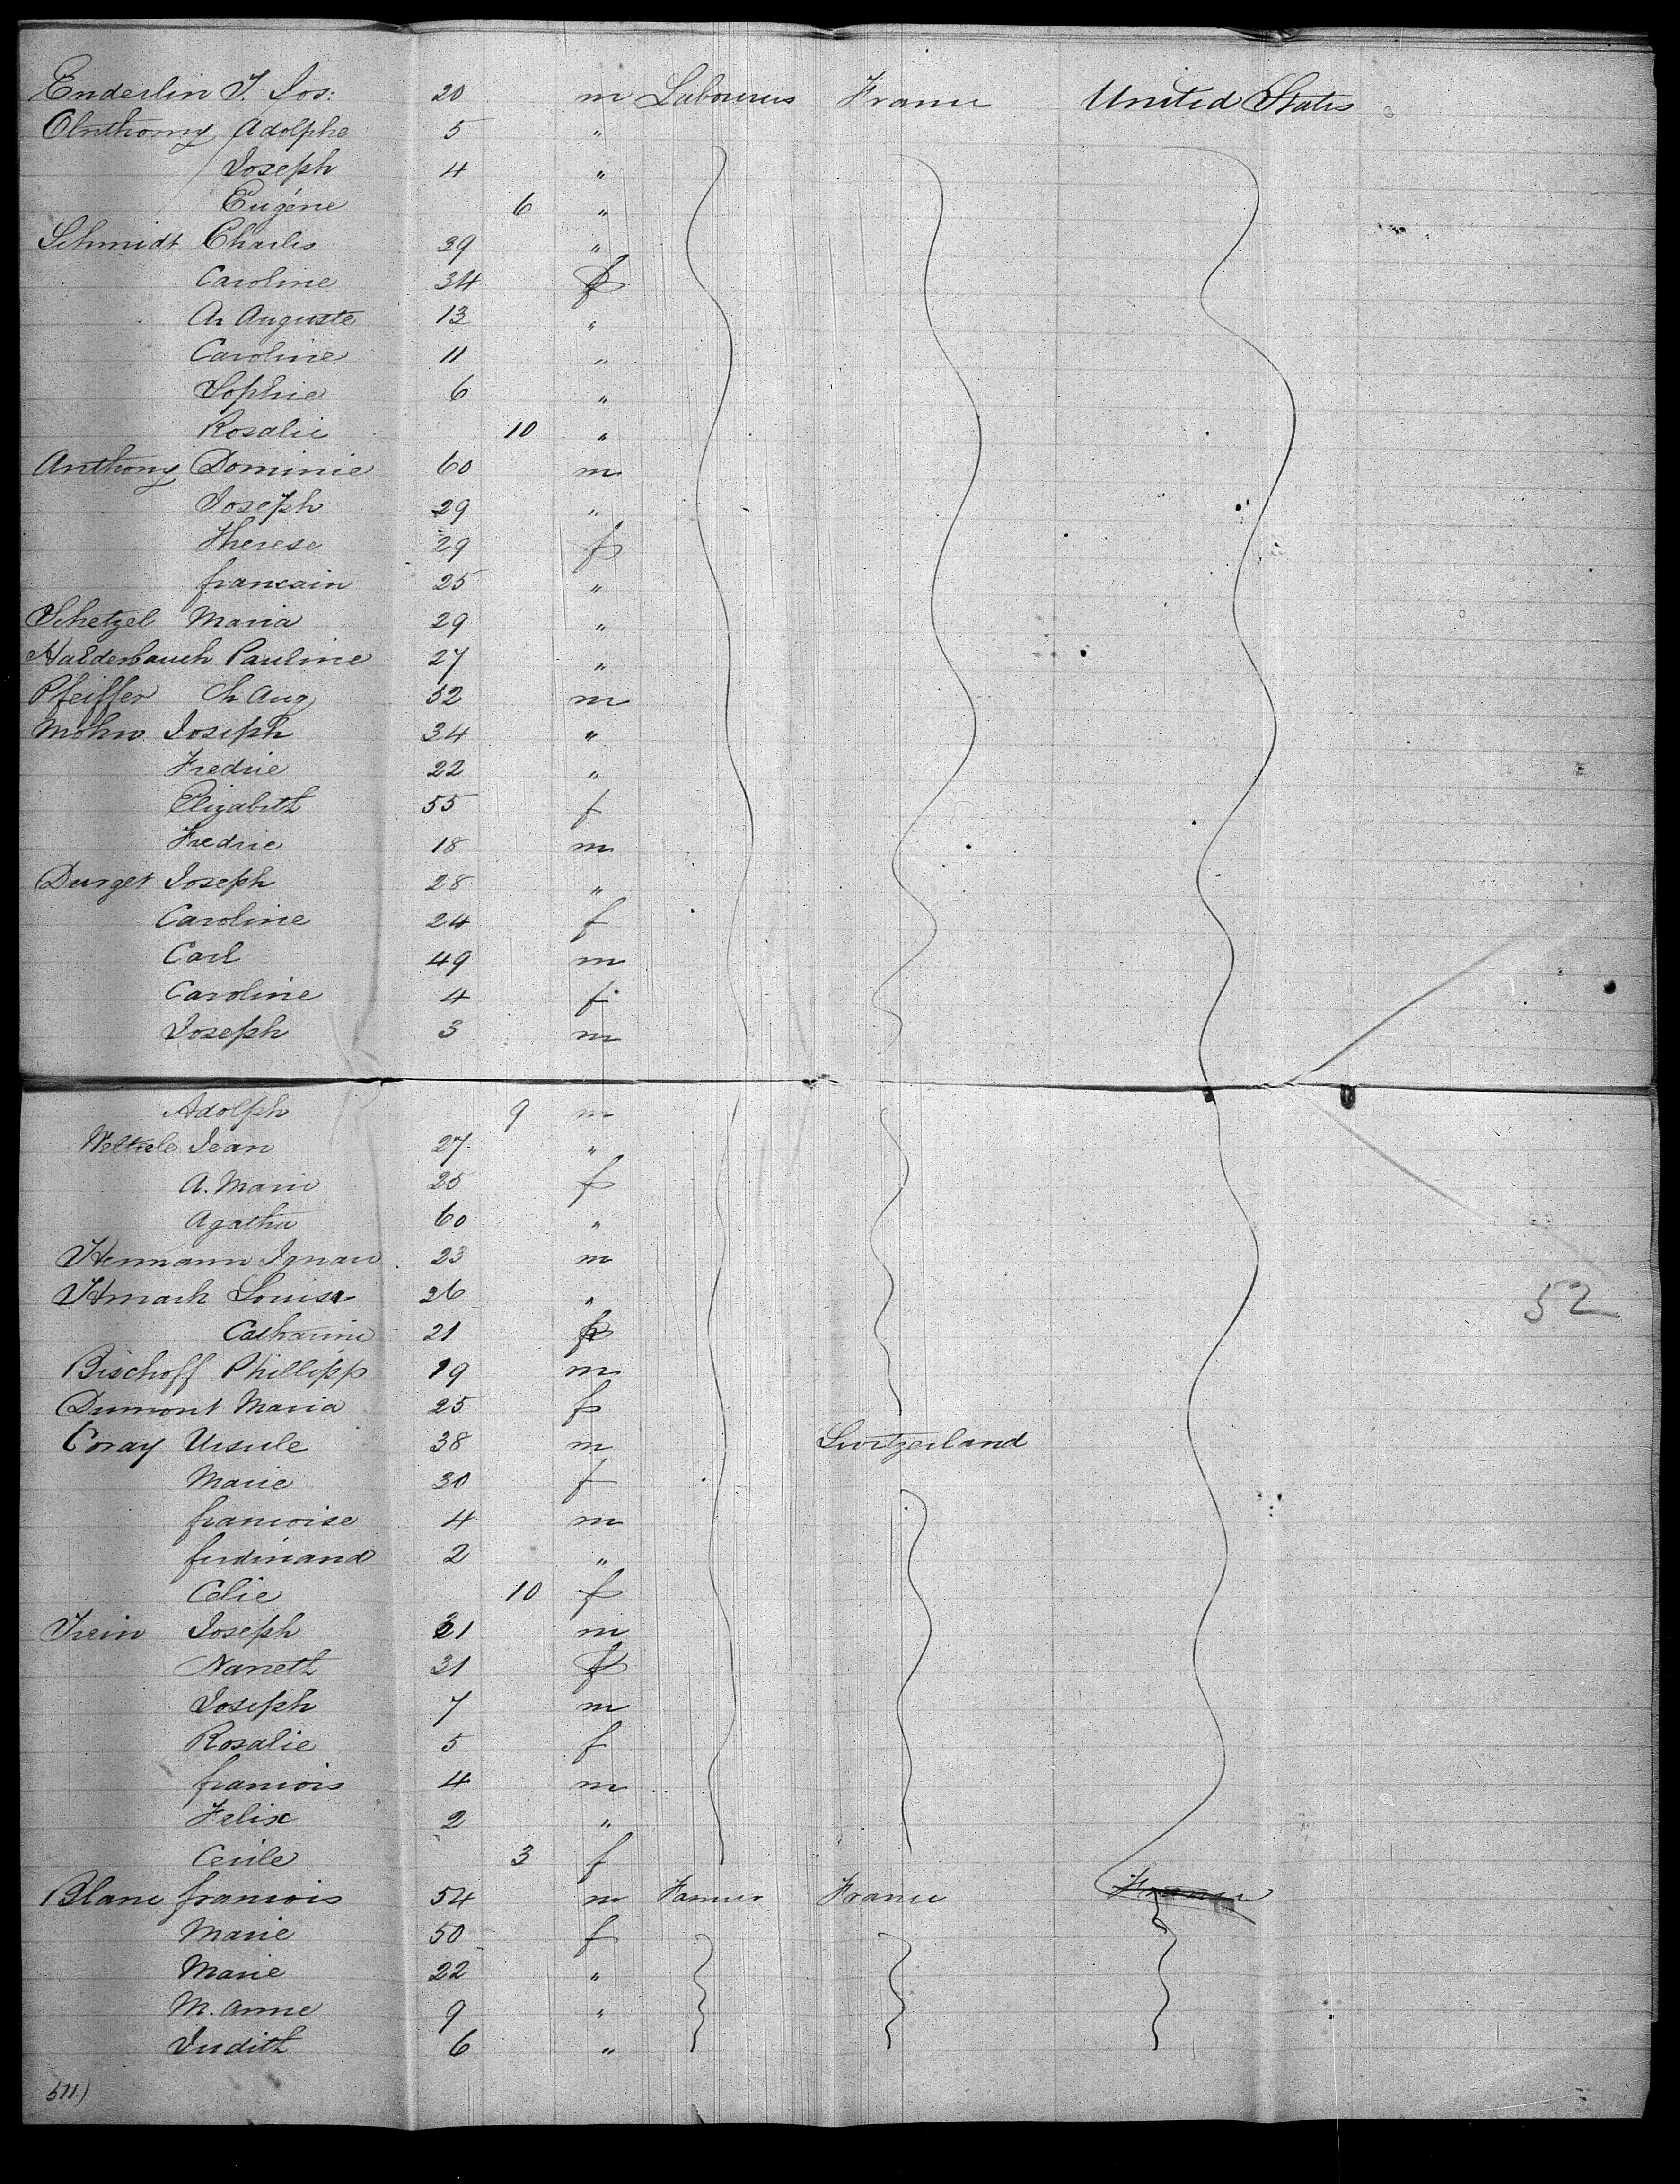 Enderlin J. Jos: 20 m Labourers France United States
Anthony Adolphe 5 "
Joseph 4 "
Eugéne 6 "
Schmidt Charles 39 "
Caroline 34 f
An Auguste 13 "
Caroline 11 "
Sophie 6 "
Rosalie 10 "
Anthony Dominic 60 m
Joseph 29 "
Therese 29 f
francain 25 "
Schetzel Maria 29 "
Halderbauch Pauline 27 "
Pfeiffer Ch Aug 52 m
Mohn Joseph 34 "
Fredric 22 "
Elizabeth 55 f
Fredric 18 m
Durget Joseph 28 "
Caroline 24 f
Carl 49 m
Caroline 4 f
Joseph 3 m
Adolph 9 m
Jean 27 "
A. Marie 25 f
Agatha 60 "
Hermann Ignace 23 m
Louis 26 "
Catharine 21 f
Bischoff Phillipp 19 m
Dumont Maria 25 f
Coray Ursule 38 m Switzerland
Marie 30 f
francoise 4 m
ferdinand 2 "
Celie 10 f
Joseph 31 m
Naneth 31 f
Joseph 7 m
Rosalie 5 f
francois 4 m
Felix 2 "
Cecile 3 f
52
Blanc francois 54 m Farmer France France
Marie 50 f
Marie 22 "
M. Anne 9 "
Judith 6 "
511)